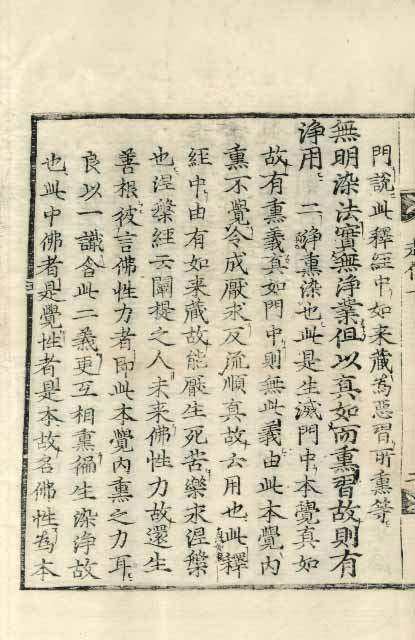 門說此釋經中如來藏為惡習所熏等
無明染法實無淨業但以真如而熏習故則有
淨用 二淨熏染也此是生滅門中本覺真如
故有熏義真如門中則無此義由此本覺內
熏不覺令成厭求反流順真故云用也此釋
經中由有如來藏故能厭生死苦樂求涅槃
也涅槃經云闡提之人未來佛性力故還生
善根彼言佛性力者即此本覺內熏之力耳
良以一識含此二義更互相熏徧生染淨故
也此中佛者是覺性者是本故名佛性為本